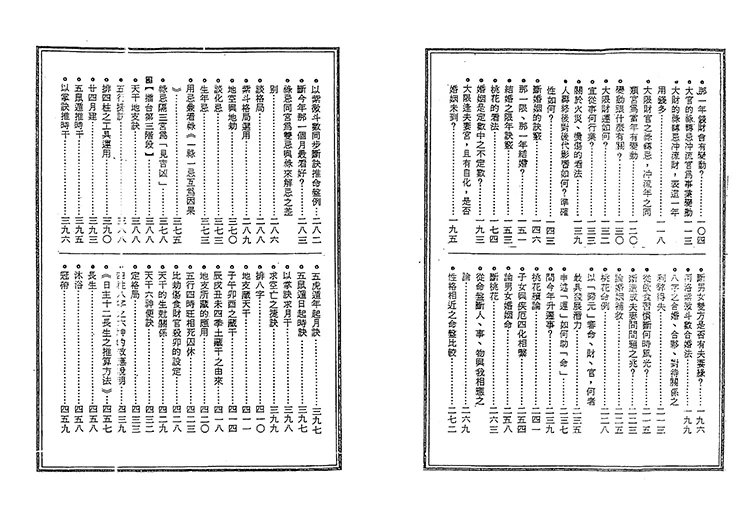 •那一年錢財會有變動？……一○四
•大官的祿轉忌沖流官為事業變動……一一三
•大財的祿轉忌沖流財，表這一年
用錢多……一一八
•大限財官之祿轉忌，沖流年之同
類宮為當年有變動……一二○
•變動跟什麼有關？……一三○
•大限財運如何？……一三二
•宜從事何行業？……一三三
•關於火災、燙傷的看法……一三九
•人壽終後對後代影響如何？準確
性如何？……一四三
•斷婚姻的訣竅……一四六
•那一限、那一年結婚？……一五一
•結婚之限年訣竅……一五三
•桃花的看法……一七四
•婚姻是定數中之不定數？……一九四
•大限逢夫妻宮，且有自化，是否
婚姻未到？……一九五
•斷男女雙方是否有夫妻緣？……一九六
•河洛紫微斗數合婚法……一九九
•八字之合婚、合夥、對待關係之
利弊得失……二一三
•從飲食習慣斷何時風光？……二一五
•婚選或夫妻間問題之兆？……二二三
•論婚姻補救……二二五
•桃花命例……二二八
•以「歸元」審命、財、官，何者
最具發展潛力……二三五
•串造「運」如何助「命」……二三七
•問今年升遷事？……二三九
•桃花續論……二四一
•子女與疾厄四化相繫……二五八
•論男女婚姻命……二五八
•斷桃花……二六三
•從命盤斷人、事、物與我相應之
論……二六九
•性格相近之命盤比較……二七二
•以紫微斗數同步斷訣推命盤例……二八二
•斷今年那一個月最看好？……二八三
•祿忌同宮為雙忌與祿來解忌之差
別……二八六
•談格局……二八八
•紫斗格局運用……二八九
•地空與地劫……三七○
•談化忌……三七三
•生年忌……三七三
•用忌兼看祿《一祿一忌互為因果
》……三七五
•祿忌隔三宮為「見吉凶」……三七八
【擂台第三階段】……三八八
•天干地支訣……三八八
•五行
•排四柱之工具運用……三九○
•廿四月建……三九三
•五鼠遁推時干……三九五
•以掌訣推時干……三九六
五虎遁年起月訣……三九七
•五鼠遁日起時訣……三九七
•以掌訣求月干……三九八
•求空亡之速訣……三九九
•排八字……四一○
•地支藏天干……四一一
•子午卯酉之藏干……四一四
•辰戌丑未四季土藏干之由來……四一八
•地支所藏的應用……四二○
•五行四時旺相死囚休……四二三
•比劫傷食財官殺卯的設定……四二八
•天干的生尅關係……四二九
•天干六神便訣……四三二
•定格局……四三三
四三九
•《日主十二長生之推算方法》……四五七
•長生……四五八
•沐浴……四五八
•冠術……四五九